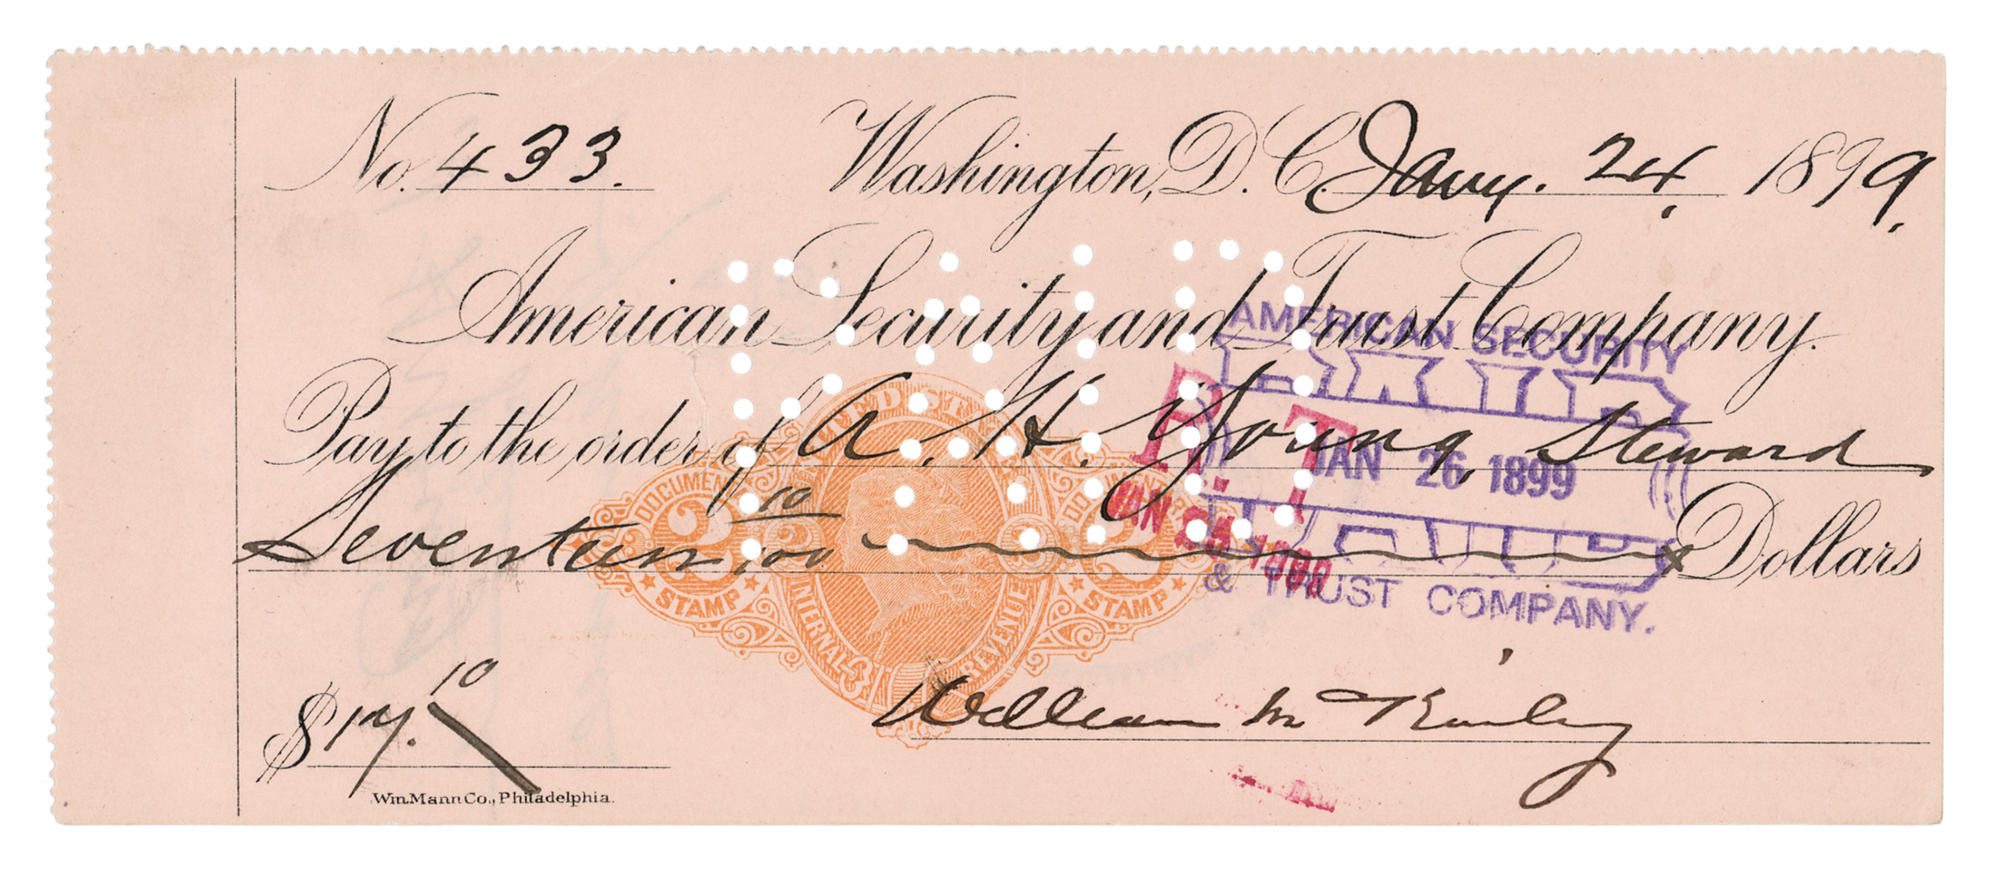 No. 433.
Washington, D.C. Jany. 24, 1899.
American Security and Trust Company.
Pay to the order of A. H. Young, Steward
Seventeen, 10/00 Dollars
$17. 10
William McKinley
Wm. Mann Co., Philadelphia.
UNITED STATES
DOCUMENTARY
2 2
STAMP STAMP
INTERNAL REVENUE
PAID
AMERICAN SECURITY
PAID
JAN 26 1899
PAID
& TRUST COMPANY.
R. T
JAN 25 1899